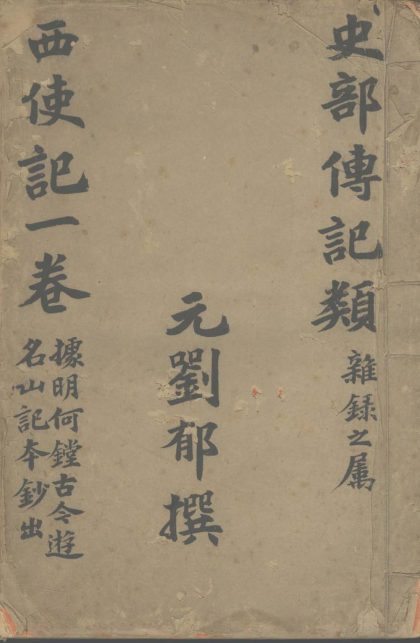 史部傳記類
雜録之属
元劉郁撰
西使記一卷
據明何鏜古今遊
名山記本鈔出